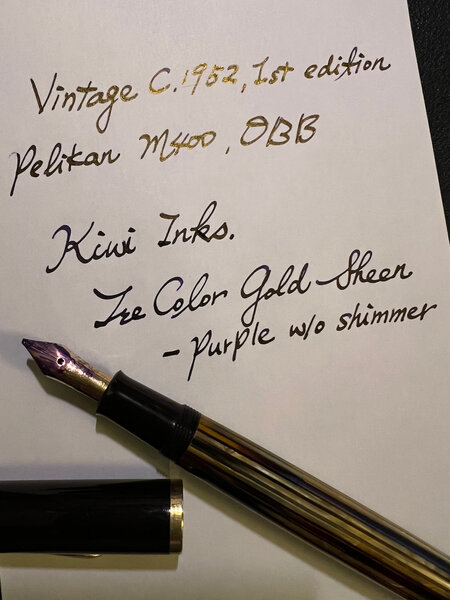 Vintage C.1952, 1st edition
Pelikan M400, OBB
Kiwi Inks.
Ice Color Gold Sheen
- Purple w/o shimmer